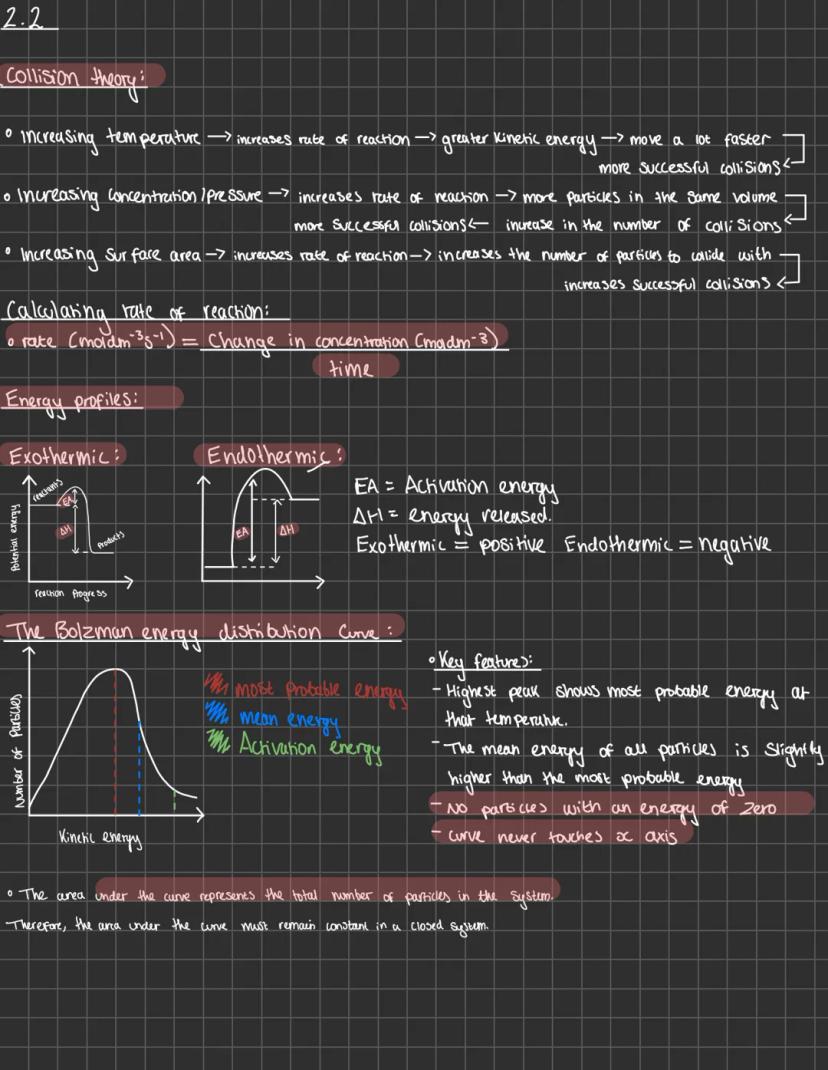 2.2
Collision theory:
° Increasing temperature → increases rate of reaction → greater kinetic energy → move a lot faster
more successful collisions ←
° Increasing concentration/pressure → increases rate of reaction → more particles in the same volume
more successful collisions ← increase in the number of collisions ←
° Increasing surface area → increases rate of reaction → increases the number of particles to collide with
increases successful collisions ←
Calculating rate of reaction:
° rate (moldm⁻³s⁻¹) = Change in concentration (moldm⁻³)
time
Energy profiles:
Exothermic:
Endothermic:
Potential energy
reactants
EA
ΔH
Products
reaction Progress
EA
ΔH
EA = Activation energy
ΔH = energy released.
Exothermic = positive Endothermic = negative
The Bolzman energy distribution Curve:
Number of Particles
Kinetic energy
most probable energy
mean energy
Activation energy
° Key features:
- Highest peak shows most probable energy at
that temperature.
- The mean energy of all particles is slightly
higher than the most probable energy
- No particles with an energy of zero
- curve never touches x axis
° The area under the curve represents the total number of particles in the system.
Therefore, the area under the curve must remain constant in a closed system.